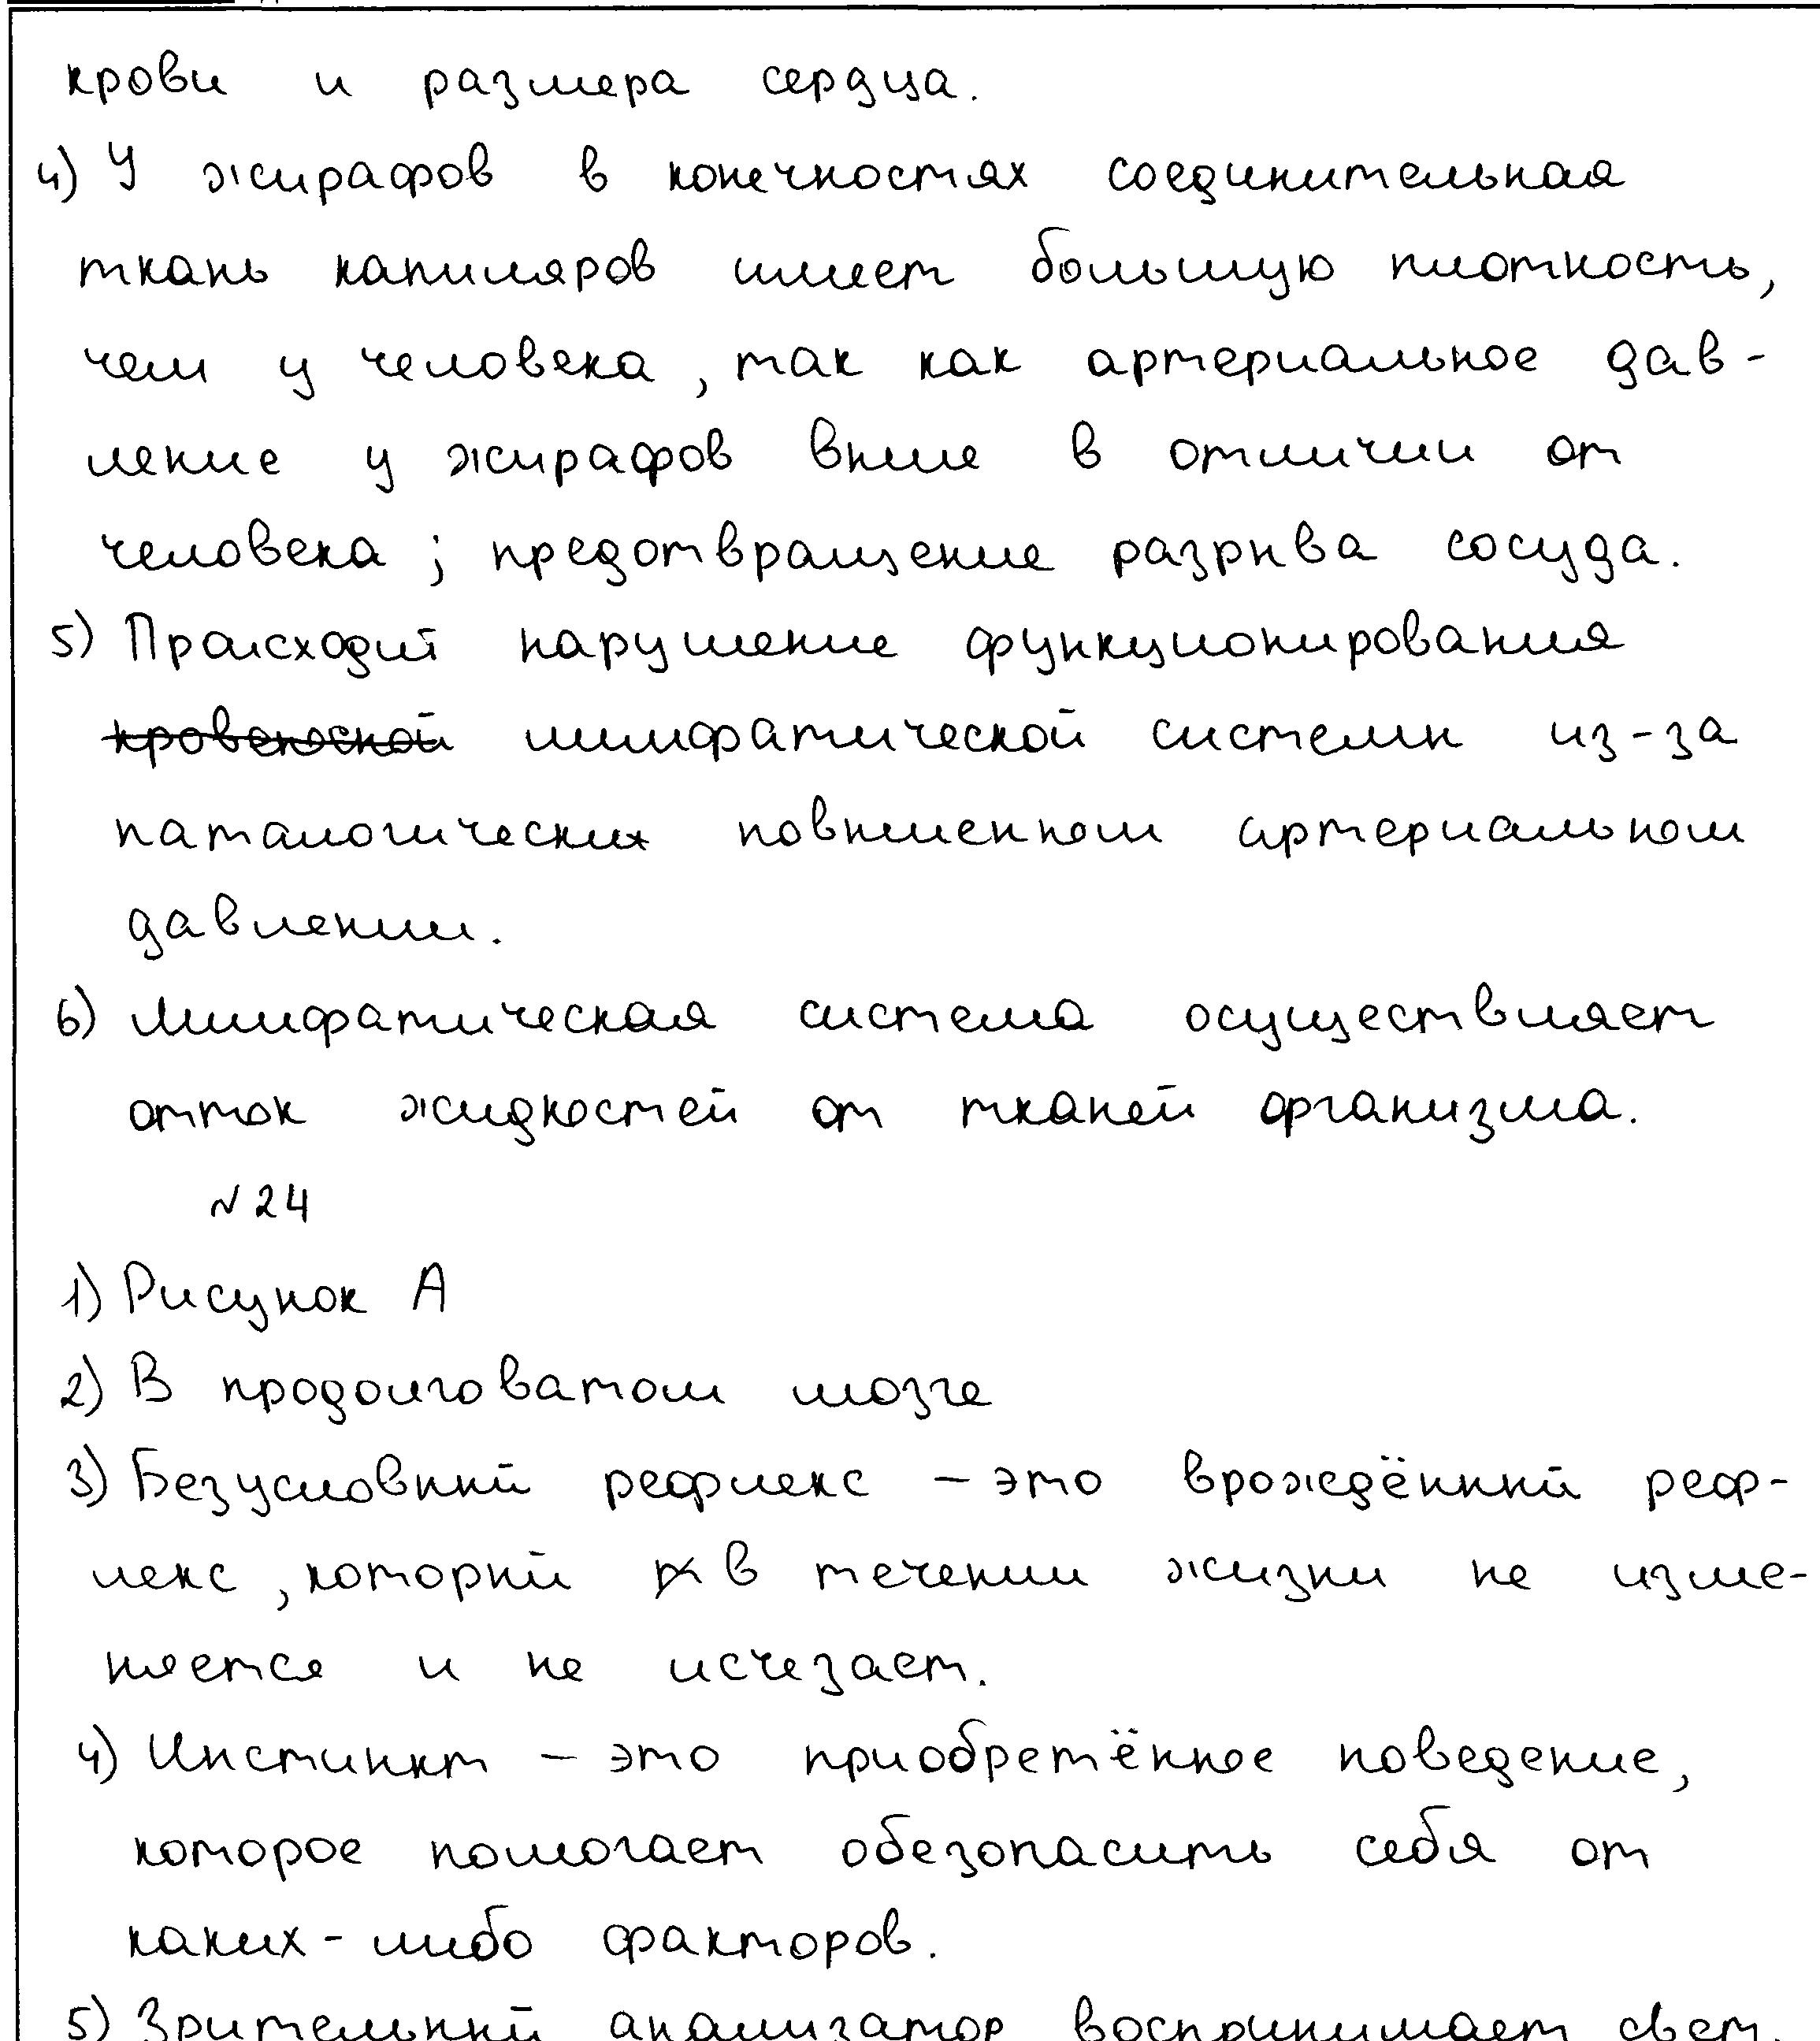 крови и размера сердца.
4) У жирафов в конечностях соединительная
ткань капиляров имеет большую плотность,
чем у человека, так как артериальное дав-
ление у жирафов выше в отличии от
человека; предотвращение разрыва сосуда.
5) Происходит нарушение функционирования
кровеносной лимфатической системы из-за
паталогических повышенном артериальном
давлении.
6) Лимфатическая система осуществляет
отток жидкостей от тканей организма.
№24
1) Рисунок А
2) В продолговатом мозге
3) Безусловный рефлекс – это врождённый реф-
лекс, который в течении жизни не изме-
няется и не исчезает.
4) Инстинкт – это приобретённое поведение,
которое помогает обезопасить себя от
каких-либо факторов.
5) Зрительный анализатор воспринимает свет,